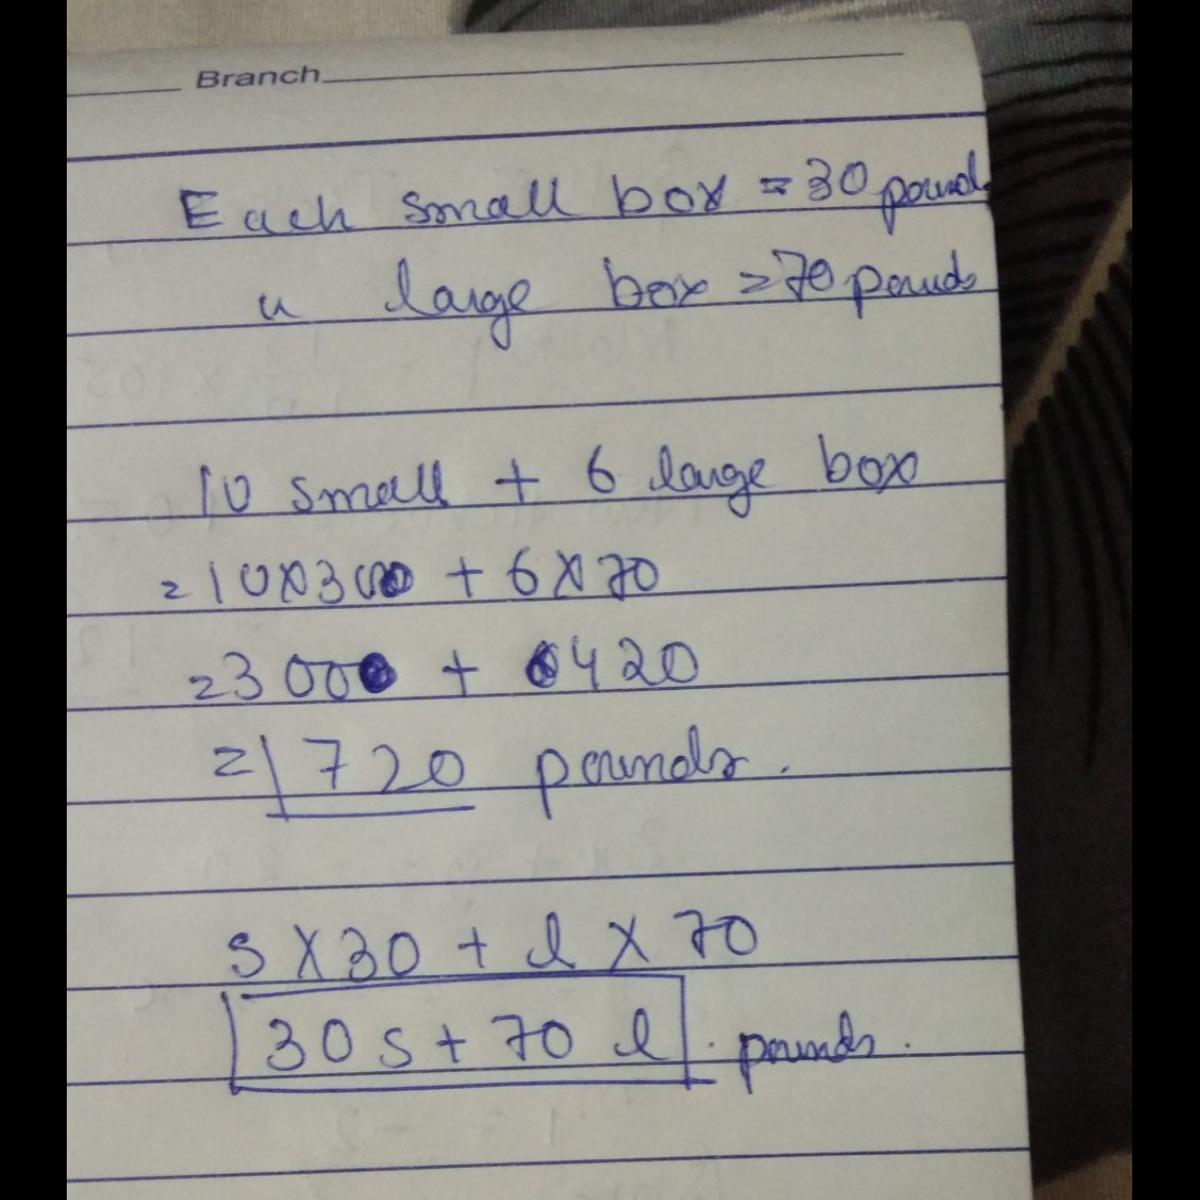 Branch
Each small box = 30 pounds
" large box = 70 pounds
10 small + 6 large box
= 10 x 30 + 6 x 70
= 300 + 420
= 720 pounds.
s x 30 + l x 70
30 s + 70 l . pounds.